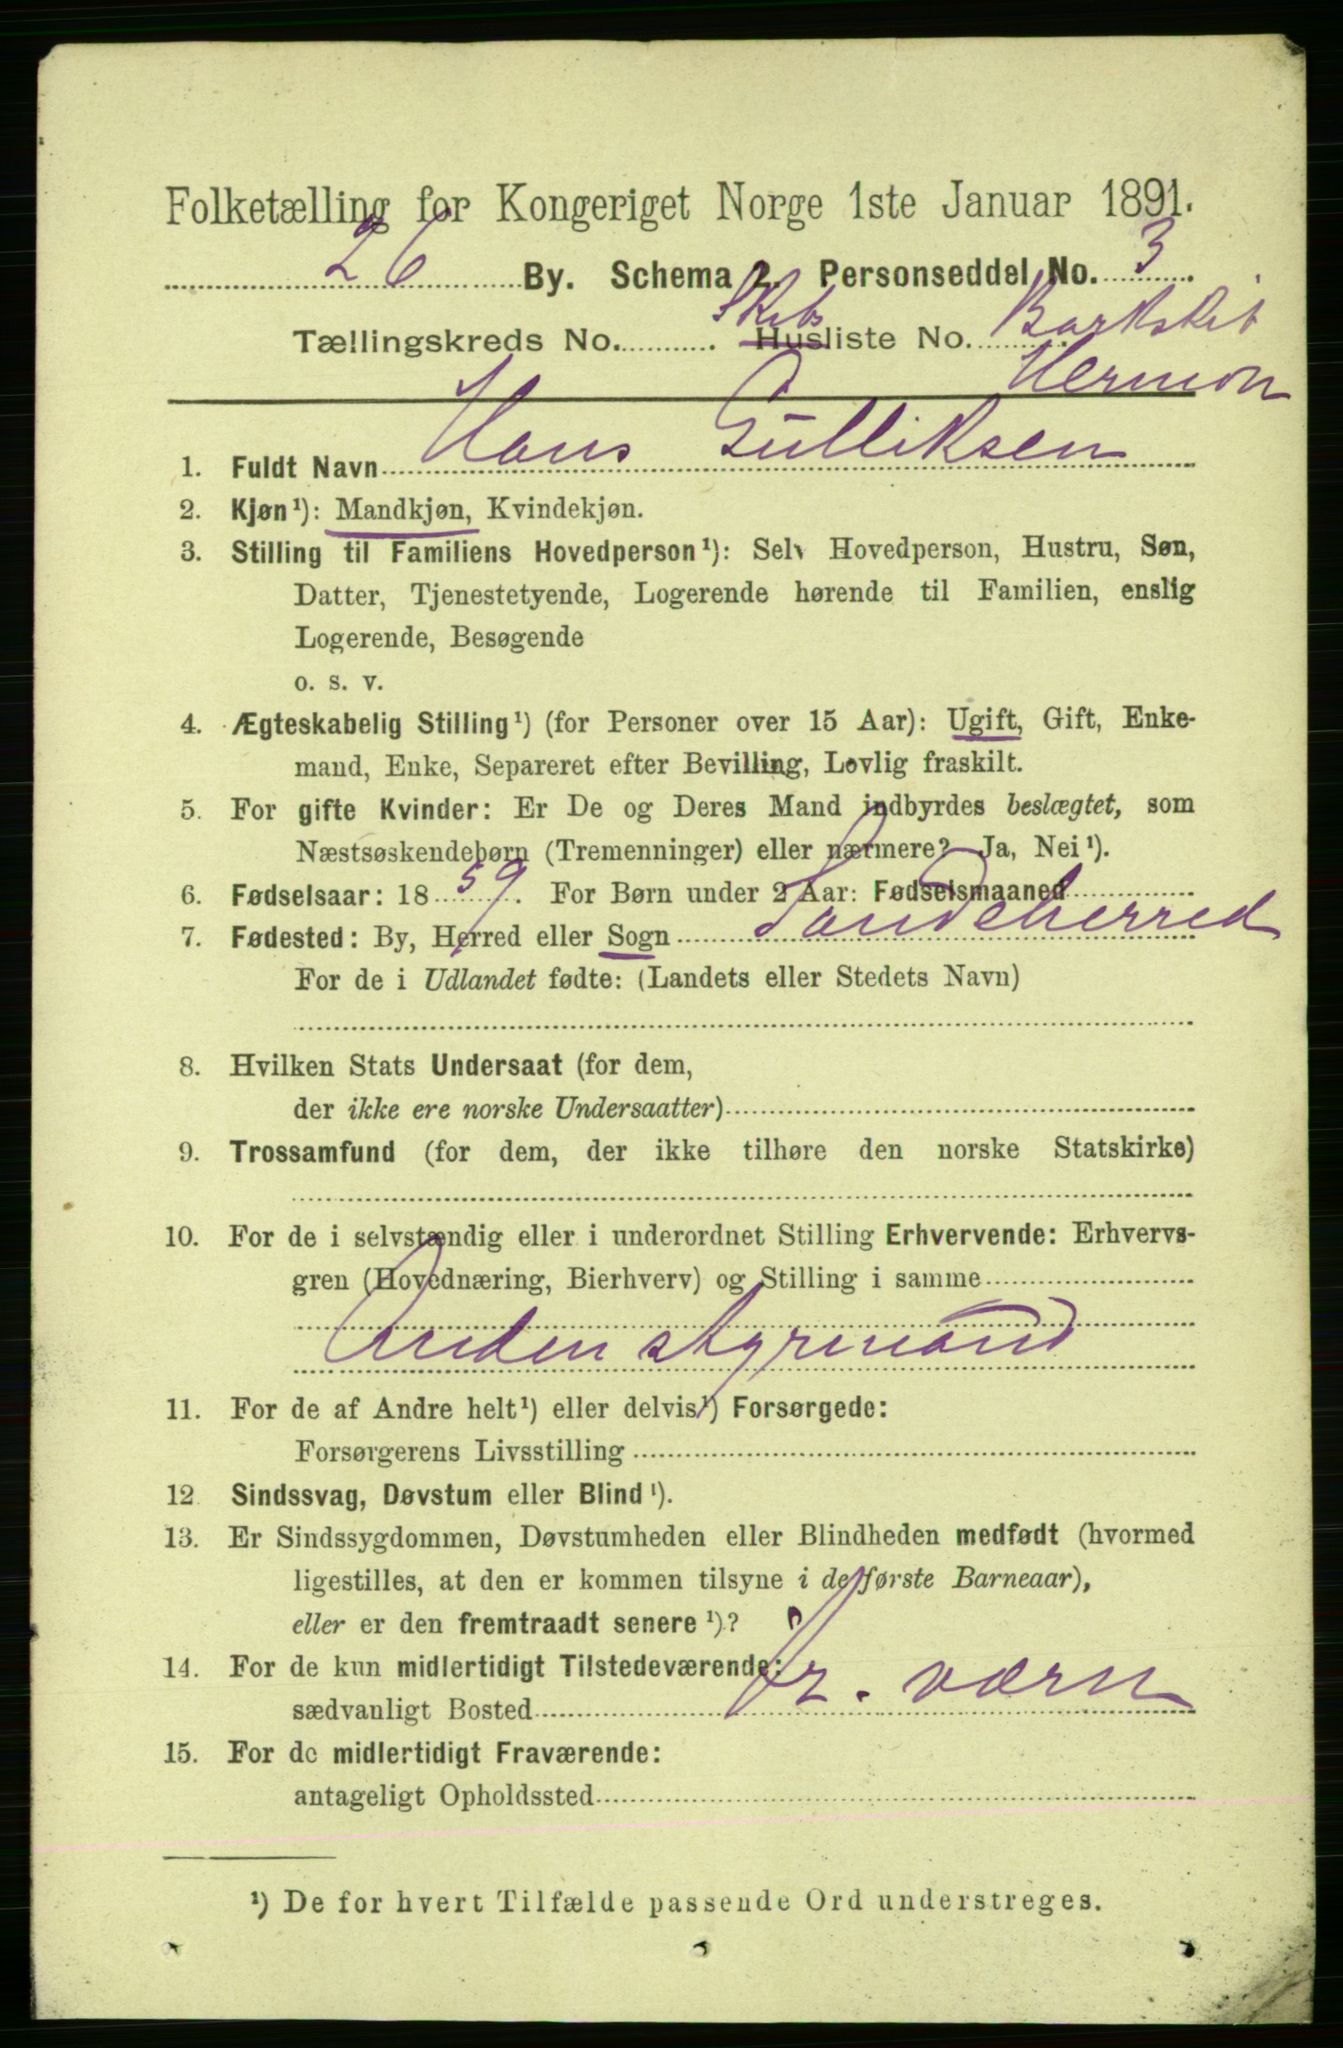 Folketælling for Kongeriget Norge 1ste Januar 1891.
26 By. Schema 2. Personseddel No. 3
Skibs Barkskib
Tællingskreds No. Husliste No.
Hermon
1. Fuldt Navn Hans Gulliksen
2. Kjøn¹): Mandkjøn, Kvindekjøn.
3. Stilling til Familiens Hovedperson¹): Selv Hovedperson, Hustru, Søn,
Datter, Tjenestetyende, Logerende hørende til Familien, enslig
Logerende, Besøgende
o. s. v.
4. Ægteskabelig Stilling¹) (for Personer over 15 Aar): Ugift, Gift, Enke-
mand, Enke, Separeret efter Bevilling, Lovlig fraskilt.
5. For gifte Kvinder: Er De og Deres Mand indbyrdes beslægtet, som
Næstsøskendebørn (Tremenninger) eller nærmere? Ja, Nei¹).
6. Fødselsaar: 1859. For Børn under 2 Aar: Fødselsmaaned
7. Fødested: By, Herred eller Sogn Sandeherred
For de i Udlandet fødte: (Landets eller Stedets Navn)
8. Hvilken Stats Undersaat (for dem,
der ikke ere norske Undersaatter)
9. Trossamfund (for dem, der ikke tilhøre den norske Statskirke)
10. For de i selvstændig eller i underordnet Stilling Erhvervende: Erhvervs-
gren (Hovednæring, Bierhverv) og Stilling i samme
Anden styrmand
11. For de af Andre helt¹) eller delvis¹) Forsørgede:
Forsørgerens Livsstilling
12 Sindssvag, Døvstum eller Blind¹).
13. Er Sindssygdommen, Døvstumheden eller Blindheden medfødt (hvormed
ligestilles, at den er kommen tilsyne i de første Barneaar),
eller er den fremtraadt senere¹)?
14. For de kun midlertidigt Tilstedeværende:
sædvanligt Bosted Fr. værn
15. For de midlertidigt Fraværende:
antageligt Opholdssted
¹) De for hvert Tilfælde passende Ord understreges.